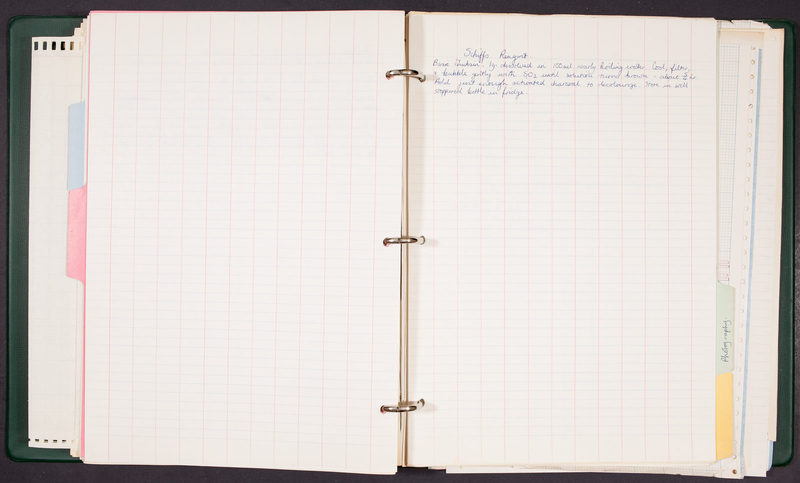 Schiffs Reagent.
Basic Fuchsin 1g dissolved in 100ml nearly boiling water. Cool, filter,
& bubble gently with SO2 until solution turns brown - about ½ hr
Add just enough activated charcoal to decolourize. Store in well
stoppered bottle in fridge.
Photography